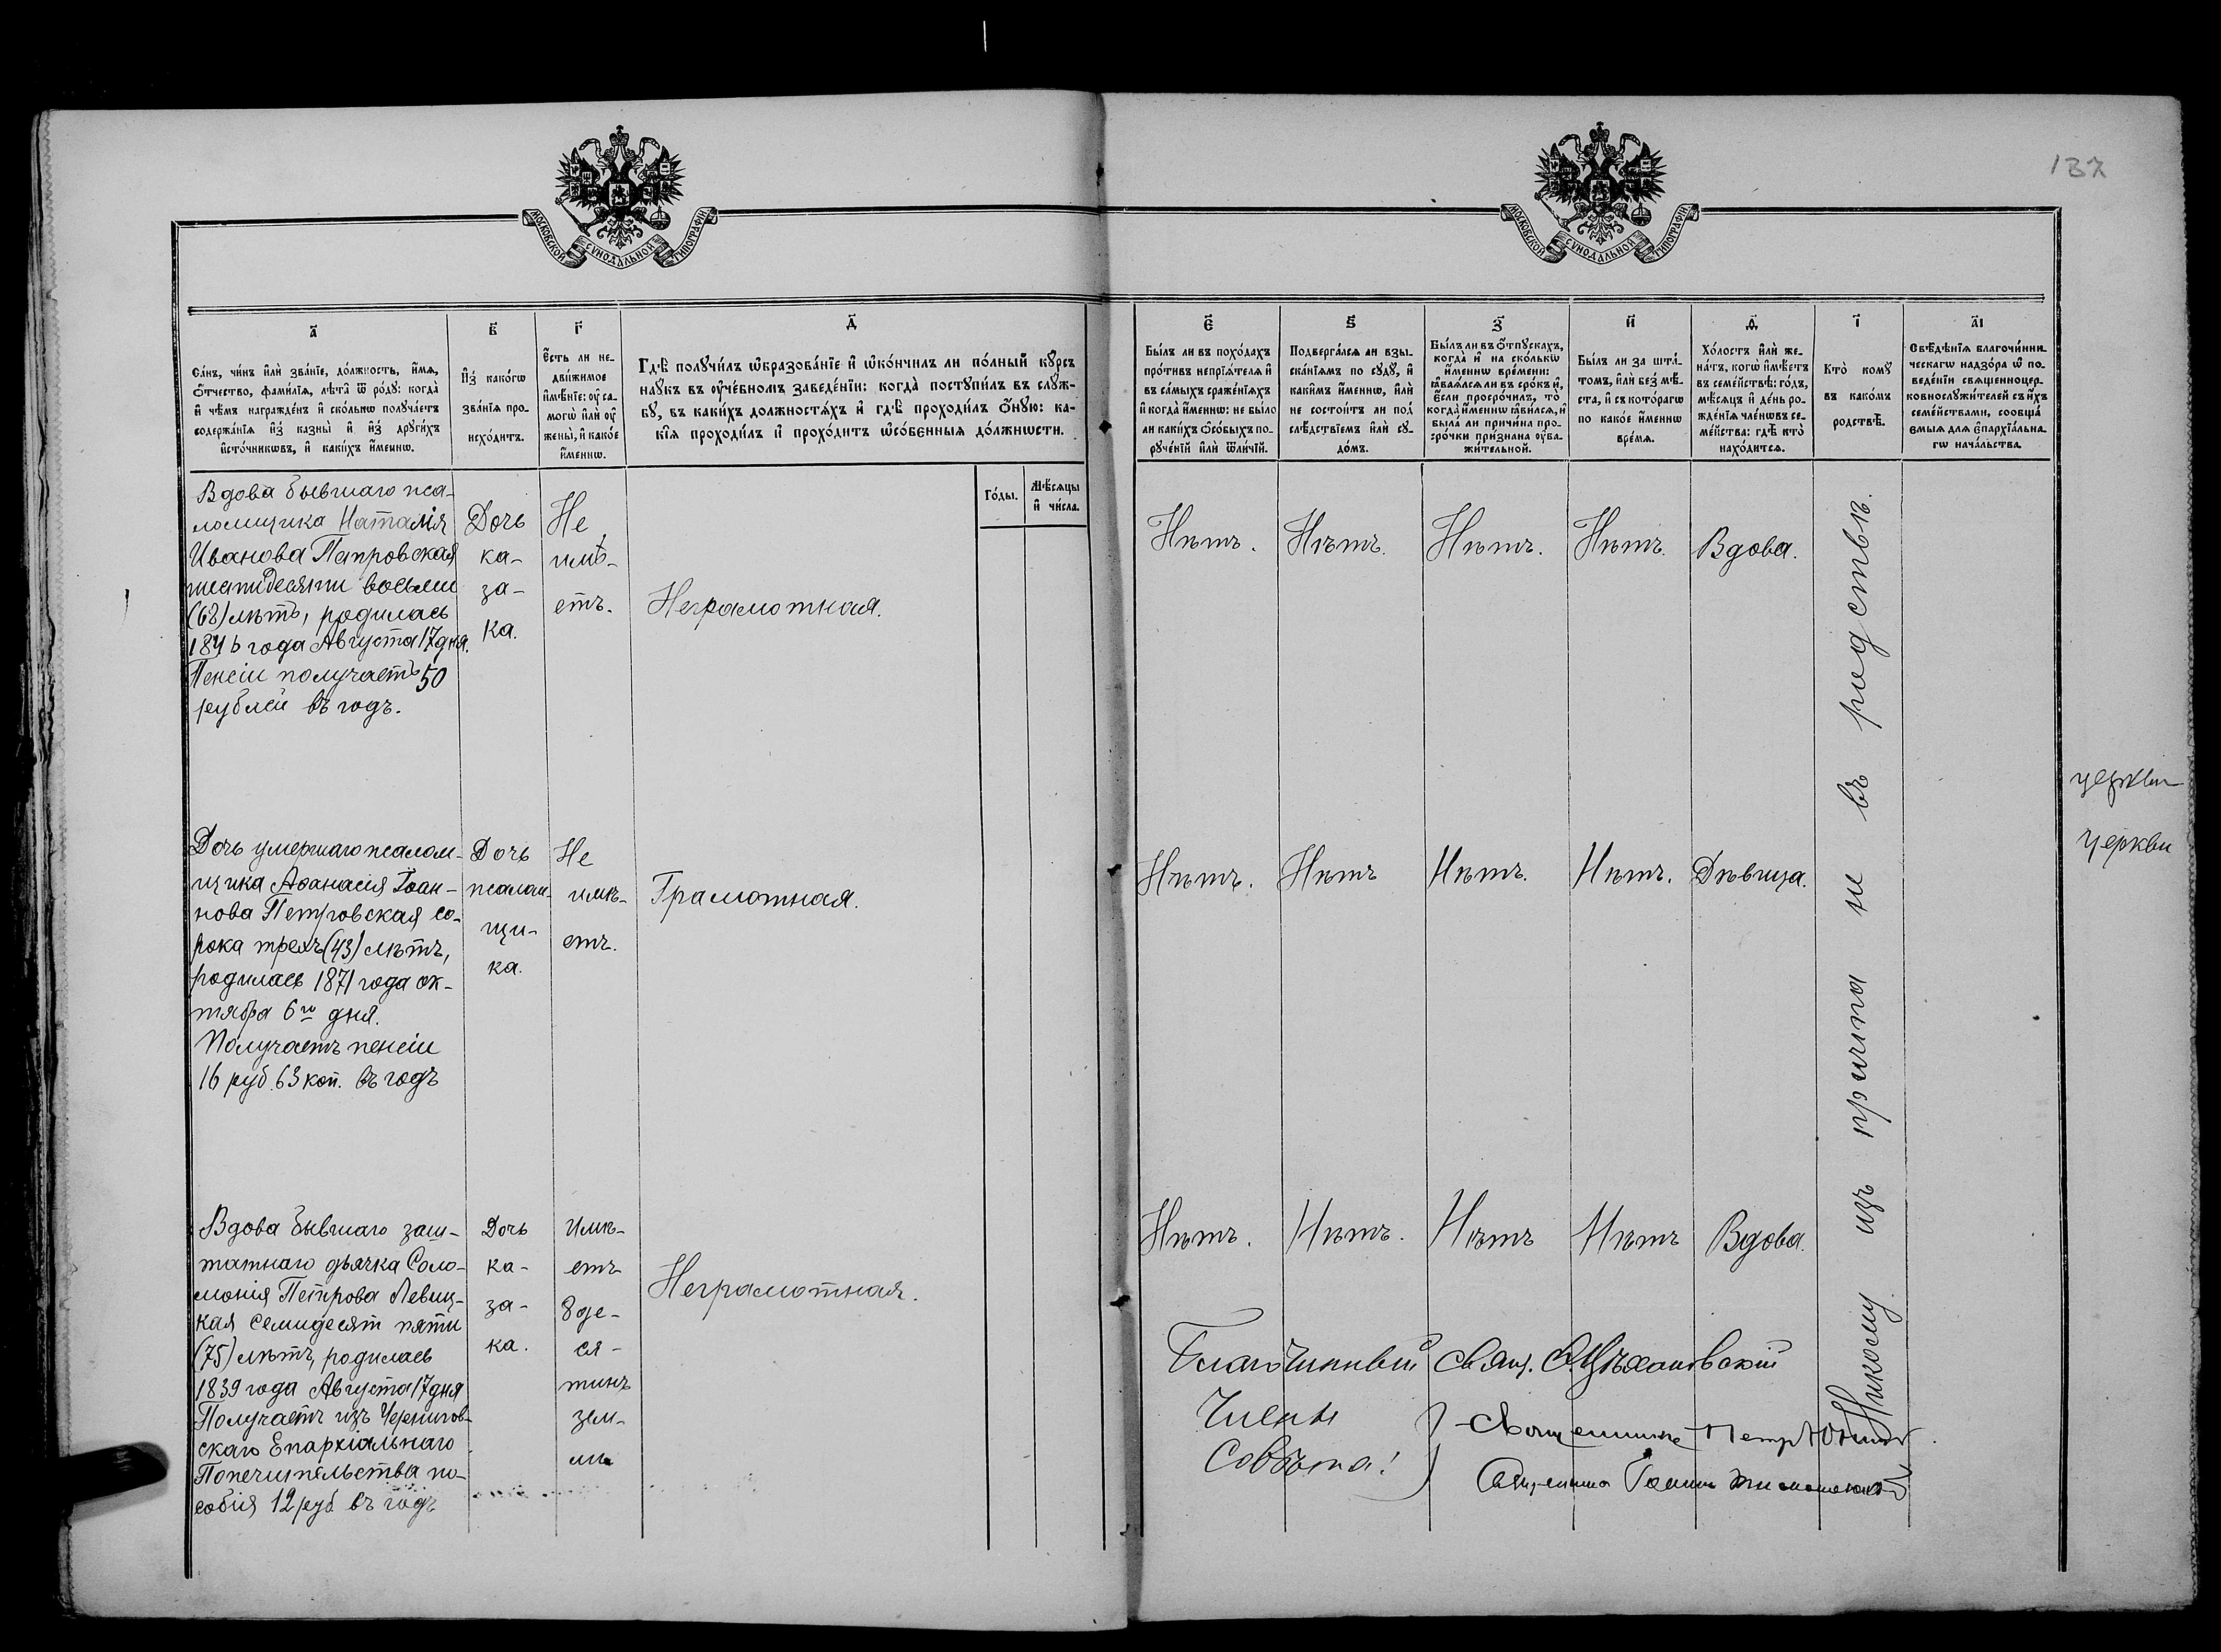 137
МОСКОВСКОЙ СУНОДАЛЬНОЙ ТИПОГРАФІИ.
МОСКОВСКОЙ СУНОДАЛЬНОЙ ТИПОГРАФІИ.
а҃
Са́нъ, чи́нъ и҆лѝ зва́нїе, до́лжность, и҆́мѧ,
ѻ҆́тчество, фами́лїѧ, лѣ́та ѿ ро́дꙋ: когда̀
и҆ чѣ́мъ награжде́нъ и҆ ско́лькѡ полꙋча́етъ
содержа́нїѧ и҆з̾ казны̀ и҆ и҆з̾ дрꙋги́хъ
и҆сто́чникѡвъ, и҆ каки́хъ и҆́меннѡ.
в҃
И҆з̾ како́гѡ
зва́нїѧ про-
исхо́дитъ.
г҃
Є҆́сть ли не-
дви́жимое
и҆мѣ́нїе: оу҆ са-
могѡ̀ и҆лѝ оу҆
жены̀, и҆ како́е
и҆́меннѡ.
д҃
Гдѣ̀ полꙋчи́лъ ѡ҆бразова́нїе и҆ ѡ҆ко́нчилъ ли по́лный кꙋ́рсъ
наꙋ́къ въ оу҆че́бномъ заведе́нїи: когда̀ постꙋпи́лъ въ слꙋ́ж-
бꙋ, въ каки́хъ должностѧ́хъ и҆ гдѣ̀ проходи́лъ ѻ҆́нꙋю: ка-
кі̑ѧ проходи́лъ и҆ прохо́дитъ ѡ҆со́бенныѧ до́лжнѡсти.
Го́ды.
Мѣ́сѧцы
и҆ чи́сла.
є҃
Бы́лъ ли въ похо́дахъ
про́тивъ непрїѧ́телѧ и҆
въ са́мыхъ сраже́нїѧхъ
и҆ когда̀ и҆́меннѡ: не бы́ло
ли каки́хъ ѻ҆со́быхъ по-
рꙋче́нїй и҆лѝ ѿли́чїй.
ѕ҃
Подверга́лсѧ ли взы-
ска́нїѧмъ по сꙋдꙋ̀, и҆
каки́мъ и҆́меннѡ, и҆лѝ
не состои́тъ ли под̾
слѣ́дствїемъ и҆лѝ сꙋ-
до́мъ.
з҃
Бы́лъ ли въ ѻ҆́тпꙋскахъ,
когда̀ и҆ на ско́лькѡ
и҆́меннѡ вре́мени:
ꙗ҆влѧ́лсѧ ли въ сро́къ и҆,
є҆́сли просро́чилъ, то̀
когда̀ и҆́меннѡ ꙗ҆ви́лсѧ, и҆
была̀ ли причи́на про-
сро́чки при́знана оу҆ва-
жи́тельной.
и҃
Бы́лъ ли за шта́-
томъ, и҆лѝ без̾ мѣ́-
ста, и҆ съ кото́рагѡ
по како́е и҆́меннѡ
вре́мѧ.
ѳ҃
Хо́лостъ и҆лѝ же-
на́тъ, когѡ̀ и҆мѣ́етъ
въ семе́йствѣ: го́дъ,
мѣ́сѧцъ и҆ де́нь ро-
жде́нїѧ чле́нѡвъ се-
ме́йства: гдѣ̀ кто̀
нахо́дитсѧ.
і҃
Кто̀ комꙋ̀
въ како́мъ
родствѣ̀.
а҃і
Свѣ́дѣнїѧ благочи́нни-
ческагѡ надзо́ра ѡ҆ по-
веде́нїи свѧще́нноцер-
ковнослꙋжи́телей съ и҆́хъ
семе́йствами, сообща́-
ємыѧ для є҆парх́їальна-
гѡ нача́льства.
Вдова бывшаго пса-
ломщика Наталія
Иванова Петровская
шестидесяти восьми
(68) лѣтъ, родилась
1846 года Августа 17 дня.
Пенсіи получаетъ 50
рублей въ годъ.
Дочь
ка-
за-
ка.
Не
имѣ-
етъ.
Неграмотная.
Нѣтъ. Нѣтъ. Нѣтъ. Нѣтъ. Вдова.
Дочь умершаго псалом-
щика Аѳанасія Іоан-
нова Петровская со-
рока трехъ (43) лѣтъ,
родилась 1871 года ок-
тября 6го дня.
Получаетъ пенсіи
16 руб. 63 коп. въ годъ
Дочь
псалом-
щи-
ка.
Не
имѣ-
етъ.
Грамотная.
Нѣтъ. Нѣтъ Нѣтъ. Нѣтъ. Дѣвица.
Вдова бывшаго заш-
татнаго дьячка Соло-
монія Петрова Левиц-
кая семидесят пяти
(75) лѣтъ, родилась
1839 года Августа 17 дня
Получаетъ изъ Чернигов-
скаго Епархіальнаго
Попечительства по-
собія 12 руб въ годъ
Дочь
ка-
за-
ка.
Имѣ-
етъ
8 де-
ся-
тинъ
зем-
ли
Неграмотная.
Нѣтъ. Нѣтъ. Нѣтъ Нѣтъ Вдова.
Никому изъ причта не въ родствѣ.
Благочинный Свящ.
Члены
Совѣта:
Священникъ Петръ
Священникъ Іоаннъ
церкви
церкви